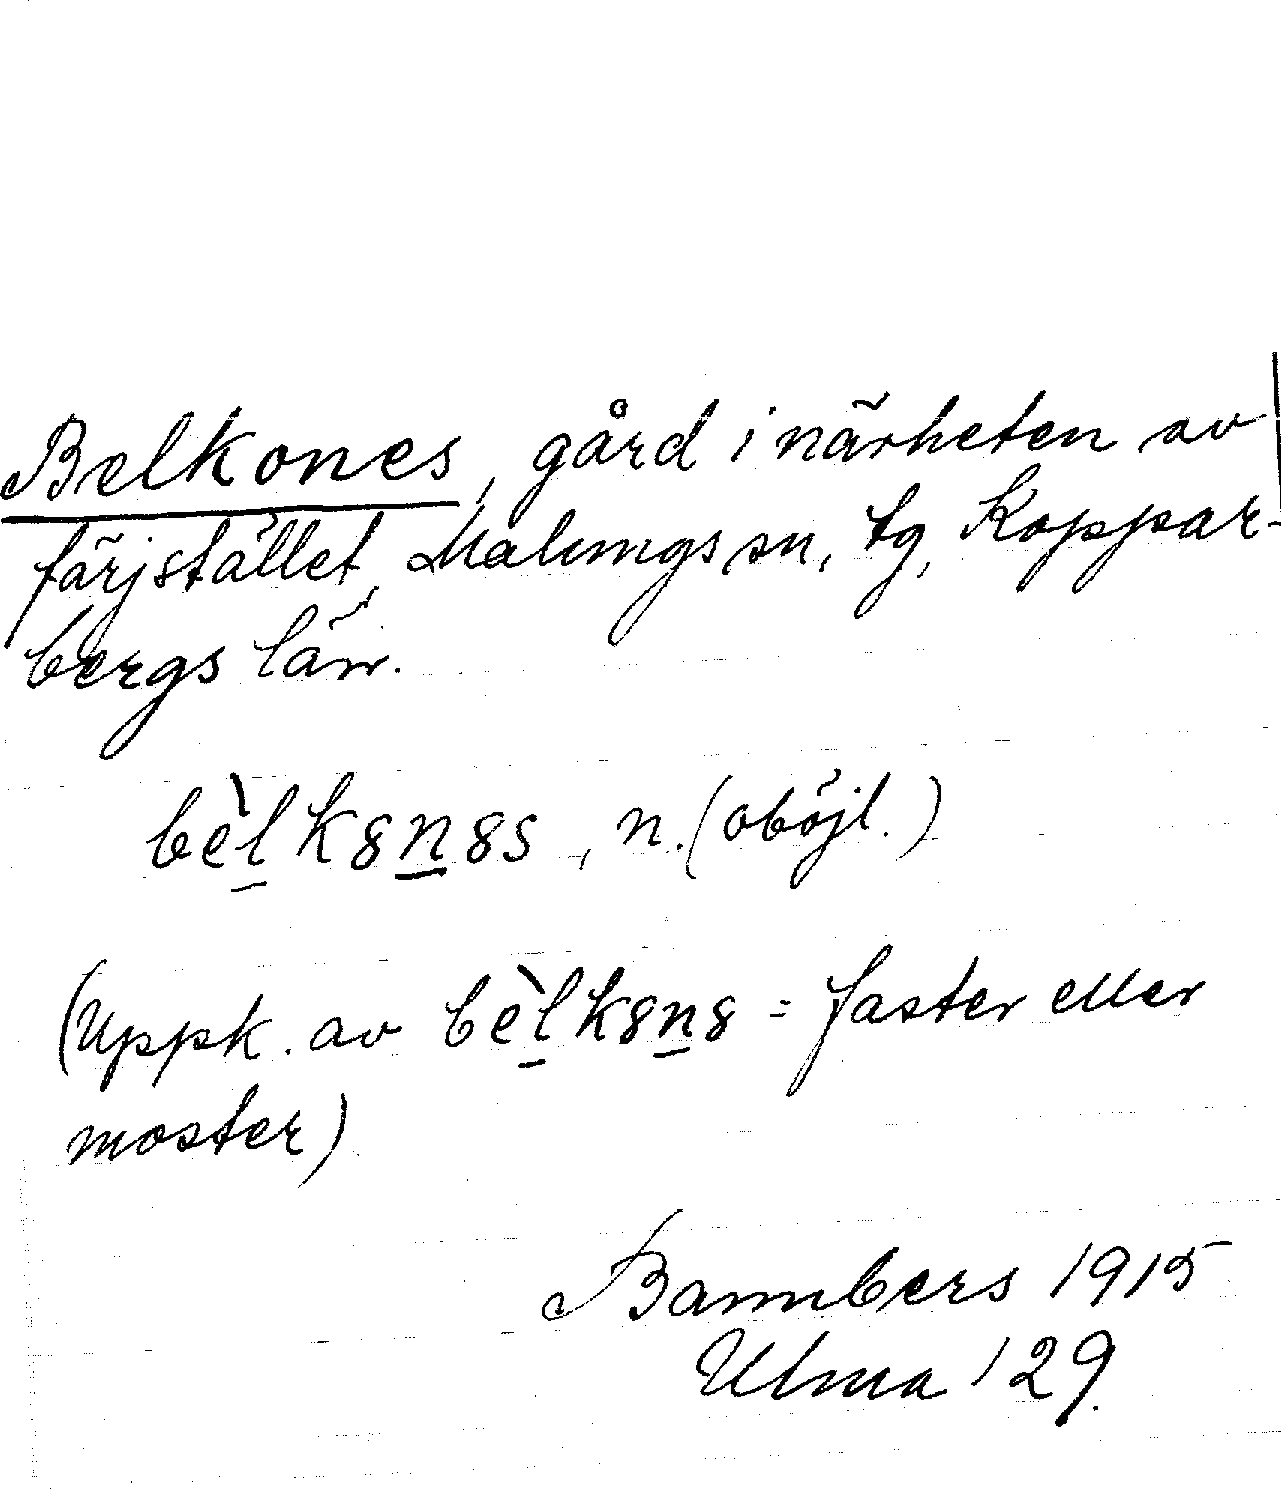 Belkones, gård i närheten av
färjstället, Malungs sn, tg, Koppar-
bergs län.
bèl̲k8n̲8s, n. (oböjl.)
(Uppk. av bèl̲k8n̲8 = faster eller
moster)
Bannbers 1915
Ulma 129.